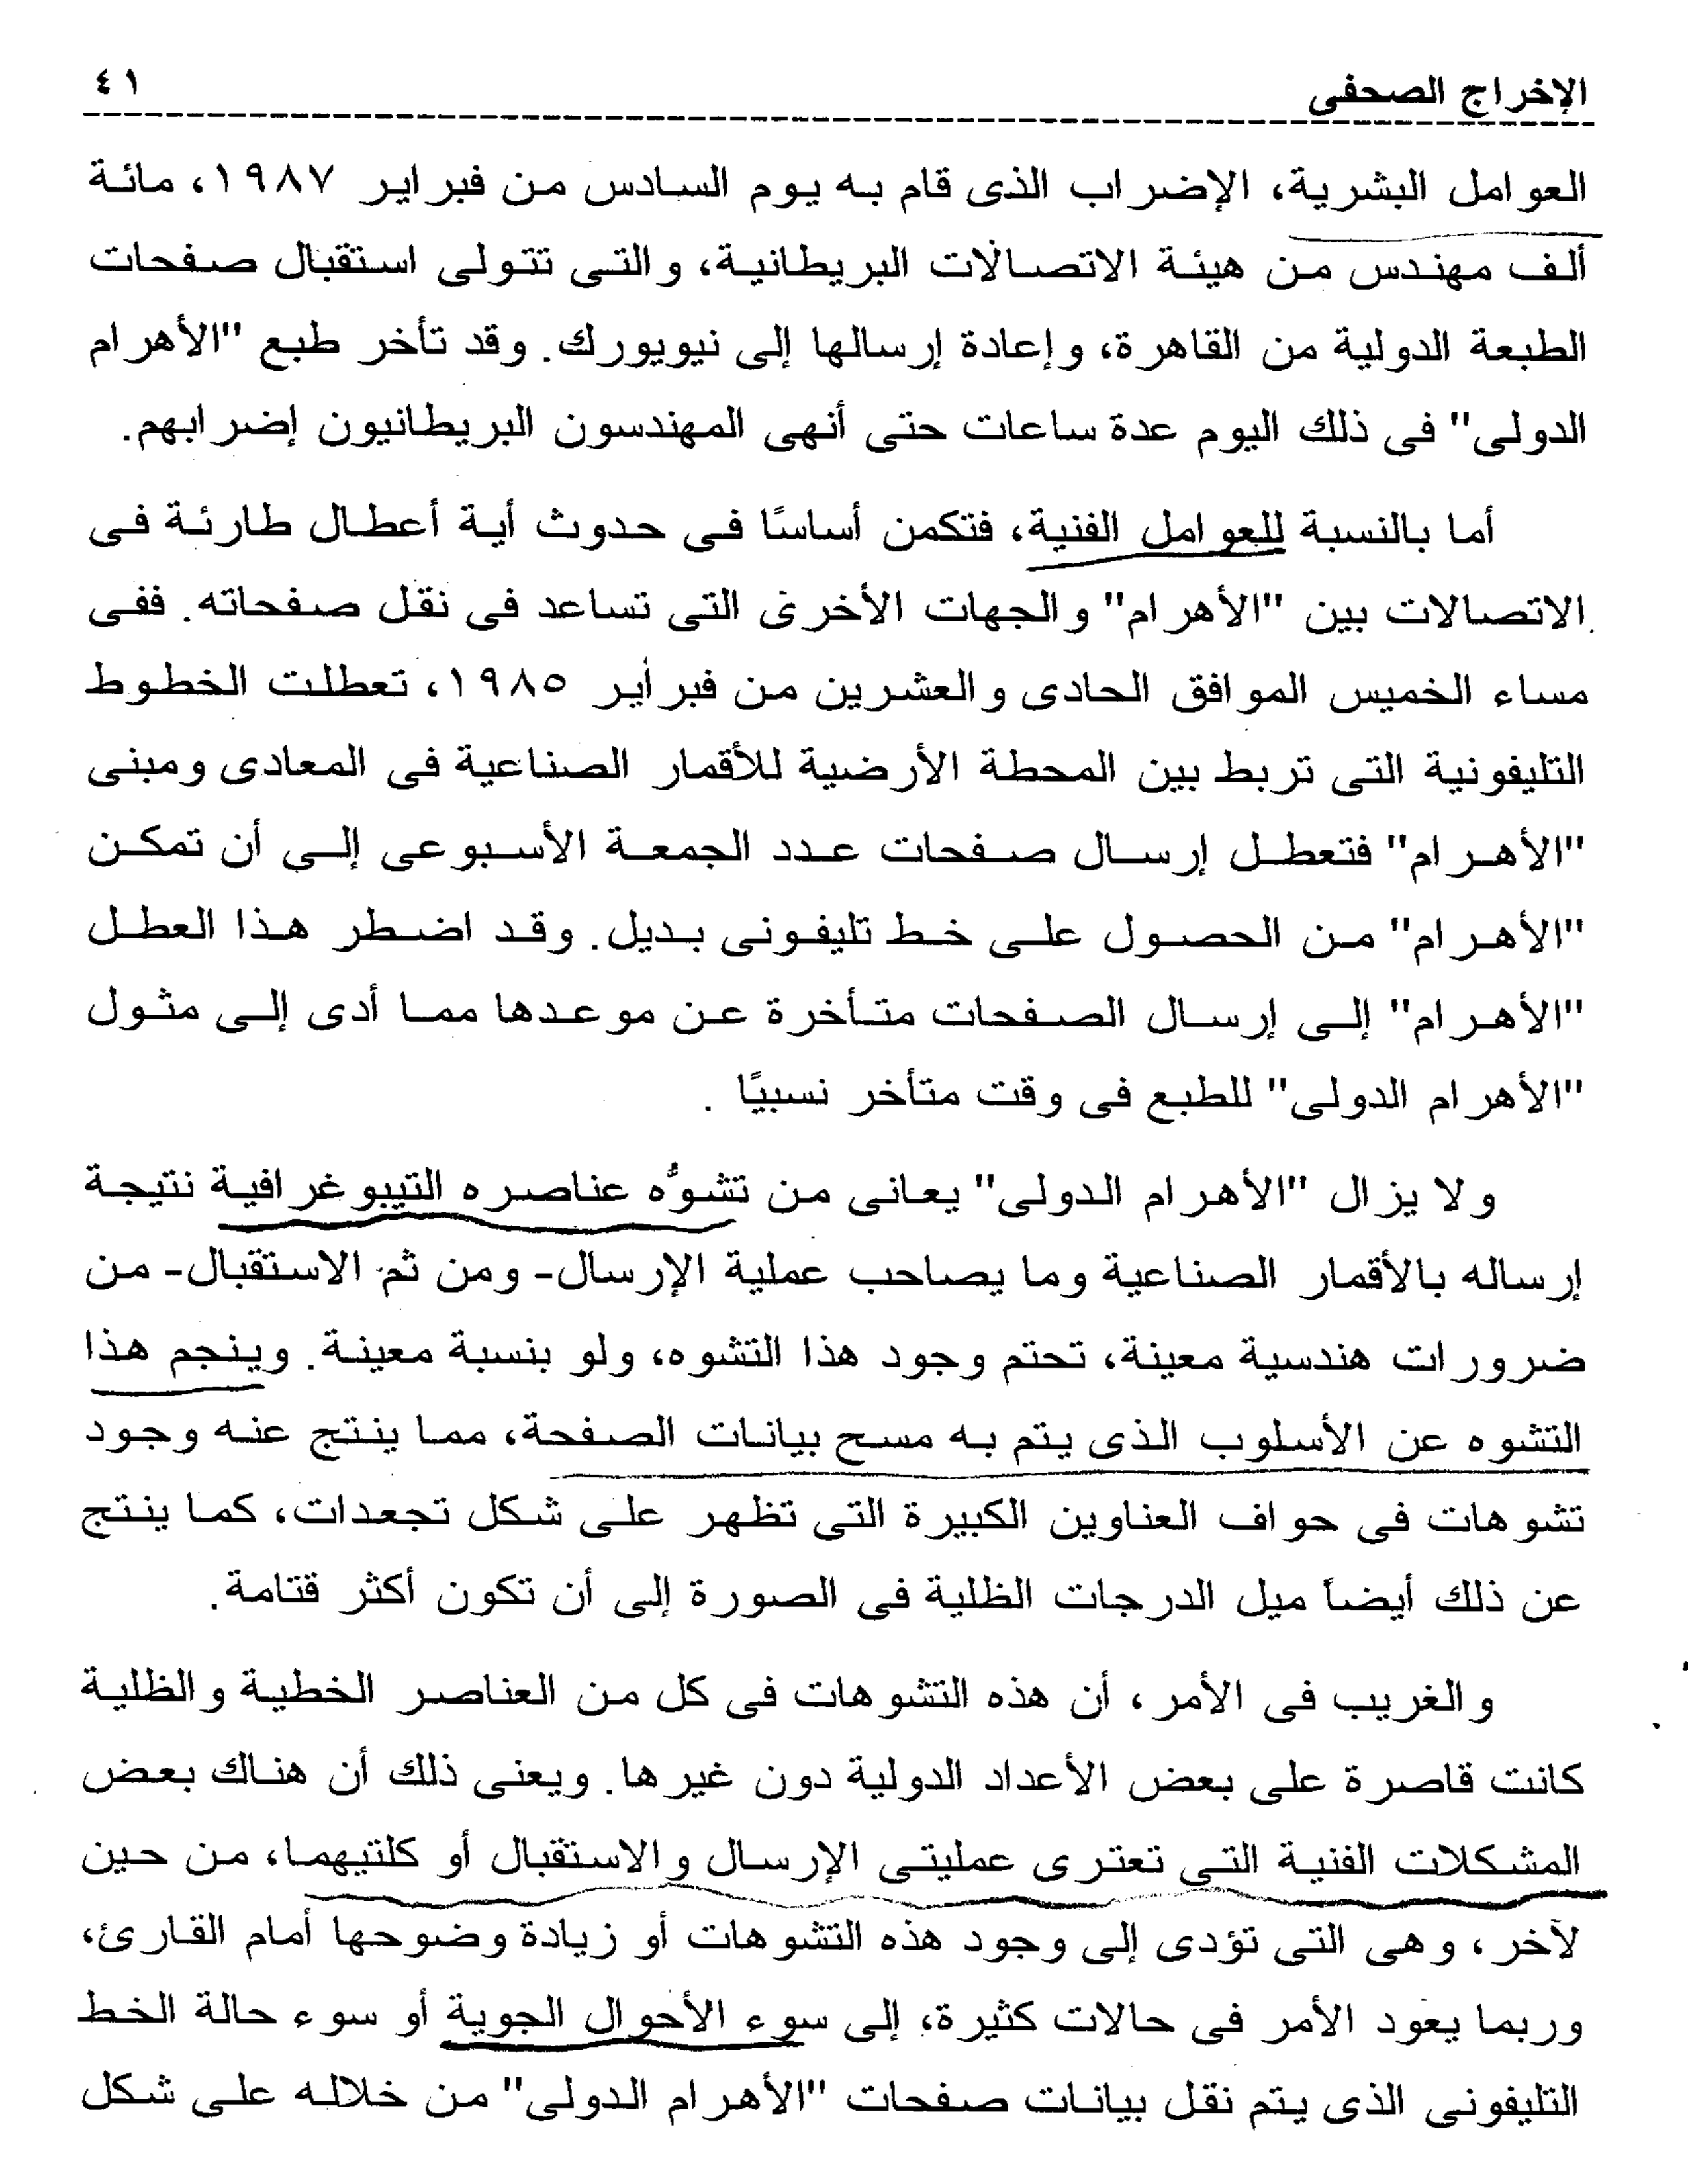 الإخراج الصحفى
٤١
العوامل البشرية، الإضراب الذى قام به يوم السادس من فبراير ١٩٨٧، مائة
ألف مهندس من هيئة الاتصالات البريطانية، والتى تتولى استقبال صفحات
الطبعة الدولية من القاهرة، وإعادة إرسالها إلى نيويورك. وقد تأخر طبع "الأهرام
الدولى" فى ذلك اليوم عدة ساعات حتى أنهى المهندسون البريطانيون إضرابهم.
أما بالنسبة للعوامل الفنية، فتكمن أساسًا فى حدوث أية أعطال طارئة فى
الاتصالات بين "الأهرام" والجهات الأخرى التى تساعد فى نقل صفحاته. ففى
مساء الخميس الموافق الحادى والعشرين من فبراير ١٩٨٥، تعطلت الخطوط
التليفونية التى تربط بين المحطة الأرضية للأقمار الصناعية فى المعادى ومبنى
"الأهرام" فتعطل إرسال صفحات عدد الجمعة الأسبوعى إلى أن تمكن
"الأهرام" من الحصول على خط تليفونى بديل. وقد اضطر هذا العطل
"الأهرام" إلى إرسال الصفحات متأخرة عن موعدها مما أدى إلى مثول
"الأهرام الدولى" للطبع فى وقت متأخر نسبيًا .
ولا يزال "الأهرام الدولى" يعانى من تشوُّه عناصره التيبوغرافية نتيجة
إرساله بالأقمار الصناعية وما يصاحب عملية الإرسال- ومن ثم الاستقبال- من
ضرورات هندسية معينة، تحتم وجود هذا التشوه، ولو بنسبة معينة. وينجم هذا
التشوه عن الأسلوب الذى يتم به مسح بيانات الصفحة، مما ينتج عنه وجود
تشوهات فى حواف العناوين الكبيرة التى تظهر على شكل تجعدات، كما ينتج
عن ذلك أيضاً ميل الدرجات الظلية فى الصورة إلى أن تكون أكثر قتامة.
والغريب فى الأمر، أن هذه التشوهات فى كل من العناصر الخطية والظلية
كانت قاصرة على بعض الأعداد الدولية دون غيرها. ويعنى ذلك أن هناك بعض
المشكلات الفنية التى تعترى عمليتى الإرسال والاستقبال أو كلتيهما، من حين
لآخر، وهى التى تؤدى إلى وجود هذه التشوهات أو زيادة وضوحها أمام القارئ،
وربما يعود الأمر فى حالات كثيرة، إلى سوء الأحوال الجوية أو سوء حالة الخط
التليفونى الذى يتم نقل بيانات صفحات "الأهرام الدولى" من خلاله على شكل